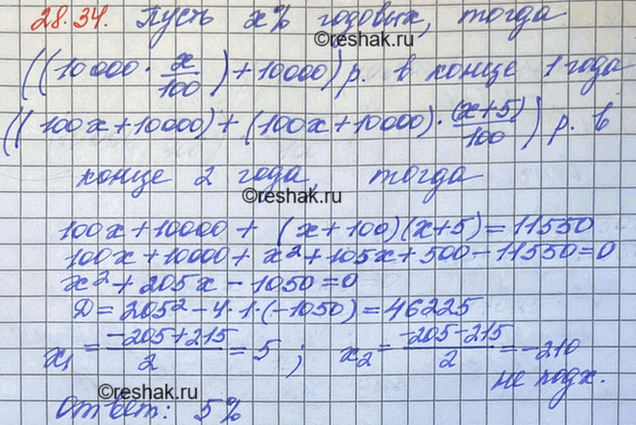 28.34. Пусть x% годовых, тогда
©reshak.ru
((10000 · x/100) + 10000) р. в конце 1 года
((100x + 10000) + (100x + 10000) · (x+5)/100) р. в
конце 2 года, тогда
©reshak.ru
100x + 10000 + (x + 100)(x + 5) = 11550
100x + 10000 + x² + 105x + 500 - 11550 = 0
x² + 205x - 1050 = 0
D = 205² - 4 · 1 · (-1050) = 46225
x₁ = (-205+215)/2 = 5 ; x₂ = (-205-215)/2 = -210
не подх.
©reshak.ru
Ответ: 5%